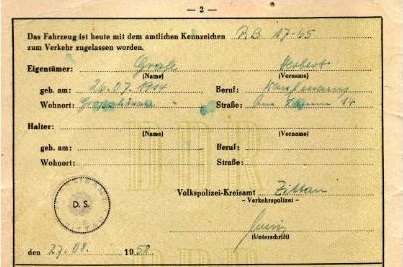 — 2 —
Das Fahrzeug ist heute mit dem amtlichen Kennzeichen R.B 17-65
zum Verkehr zugelassen worden.
Eigentümer: Herbert
(Name) (Vorname)
geb. am: 26.07.1914 Beruf: Kaufmann
Wohnort: Straße: 14
Halter:
(Name) (Vorname)
geb. am: Beruf:
Wohnort: Straße:
DDR
D. S.
Volkspolizei-Kreisamt Zittau
– Verkehrspolizei –
(Unterschrift)
den 27.08. 1958